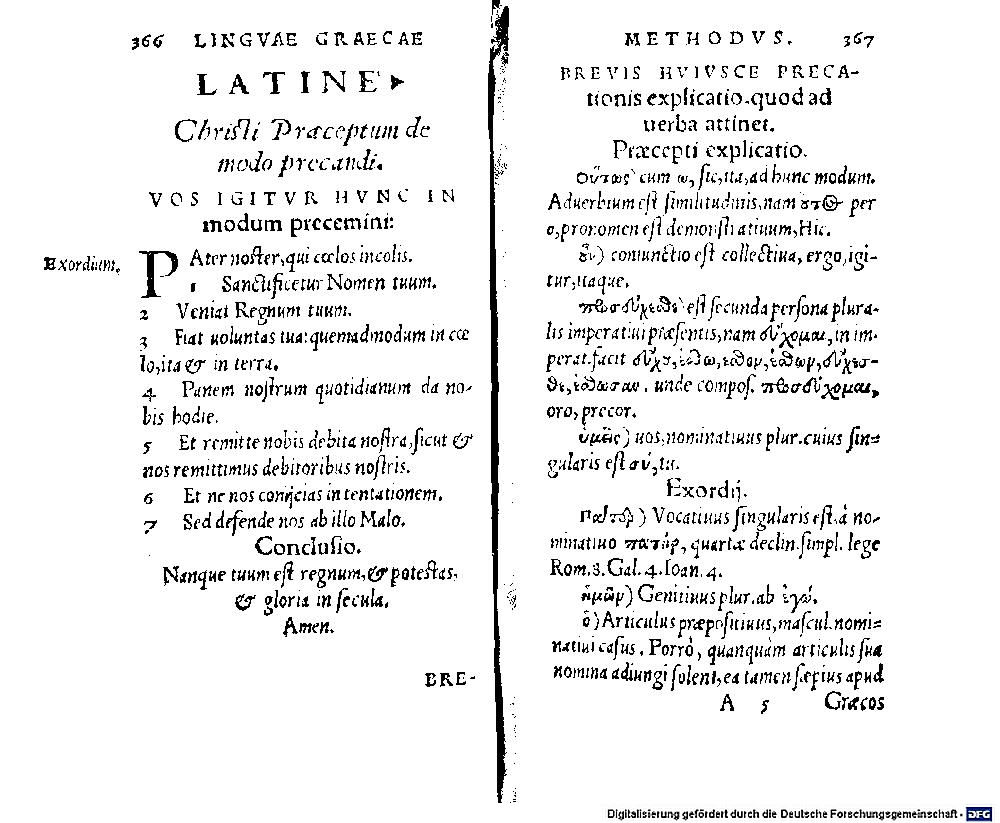 366 LINGVAE GRAECAE
LATINE
Christi Præceptum de
modo precandi.
VOS IGITVR HVNC IN
modum precemini:
Exordium.
PAter noster, qui cœlos incolis.
1 Sanctificetur Nomen tuum.
2 Veniat Regnum tuum.
3 Fiat uoluntas tua: quemadmodum in cœ
lo, ita & in terra.
4 Panem nostrum quotidianum da no-
bis hodie.
5 Et remitte nobis debita nostra, sicut &
nos remittimus debitoribus nostris.
6 Et ne nos conijcias in tentationem.
7 Sed defende nos ab illo Malo.
Conclusio.
Nanque tuum est regnum, & potestas,
& gloria in secula.
Amen.
BRE-
METHODVS. 367
BREVIS HVIVSCE PRECA-
tionis explicatio. quod ad
uerba attinet.
Præcepti explicatio.
οὕτως cum ω, sic, ita, ad hunc modum.
Aduerbium est similitudinis, nam οὗτος per
o, pronomen est demonstratiuum, Hic.
οὖν) coniunctio est collectiua, ergo, igi-
tur, itaque.
προσεύχεσθε est secunda persona plura-
lis imperatiui præsentis, nam εὔχομαι, in im-
perat. facit εὔχου, έσθω, εσθον, έσθων, εὔχεσ-
θε, έσθωσαν. unde compos. προσεύχομαι,
oro, precor.
ὑμεῖς) uos, nominatiuus plur. cuius sin=
gularis est σύ, tu.
Exordij.
Πάτερ) Vocatiuus singularis est, à no-
minatiuo πατήρ, quartæ declin. simpl. lege
Rom. 8. Gal. 4. Ioan. 4.
ἡμῶν) Genitiuus plur. ab ἐγώ.
ὁ) Articulus præpositiuus, mascul. nomi=
natiui casus. Porrò, quanquàm articulis sua
nomina adiungi solent, ea tamen sæpius apud
A 5 Græcos
Digitalisierung gefördert durch die Deutsche Forschungsgemeinschaft - DFG